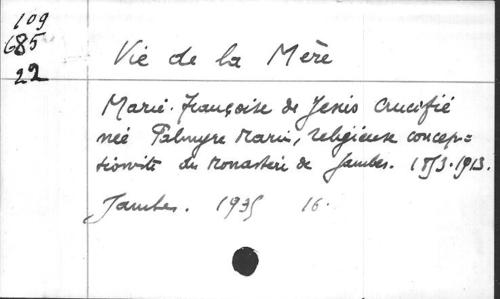 109
685
22
Vie de la Mère
Marie-Françoise de Jésus Crucifié
née Palmyre Marin, religieuse concep=
tionniste du monastère de Jambes. 1953.1913.
Jambes. 1935 16.